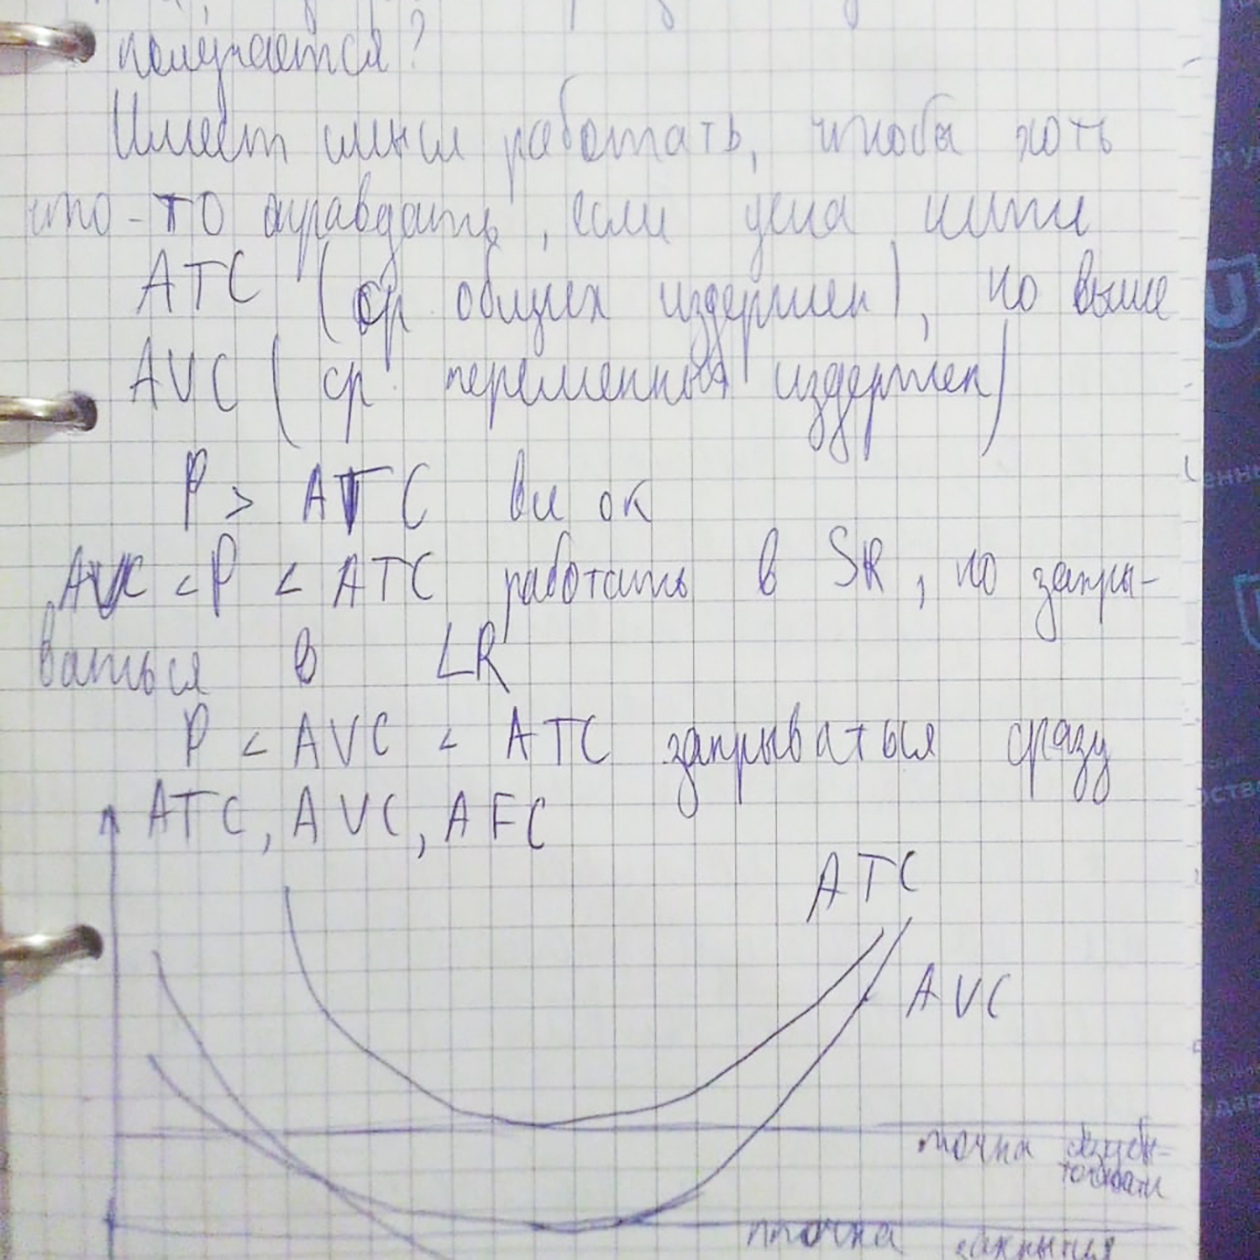 получается?
Имеет смысл работать, чтобы хоть
что-то оправдать, если цена ниже
ATC (ср. общих издержек), но выше
AVC (ср. переменных издержек)
P > ATC все ок
AVC < P < ATC работать в SR, но закры-
ваться в LR
P < AVC < ATC закрываться сразу
ATC, AVC, AFC
ATC
AVC
точка безубы-
точности
точка закрытия